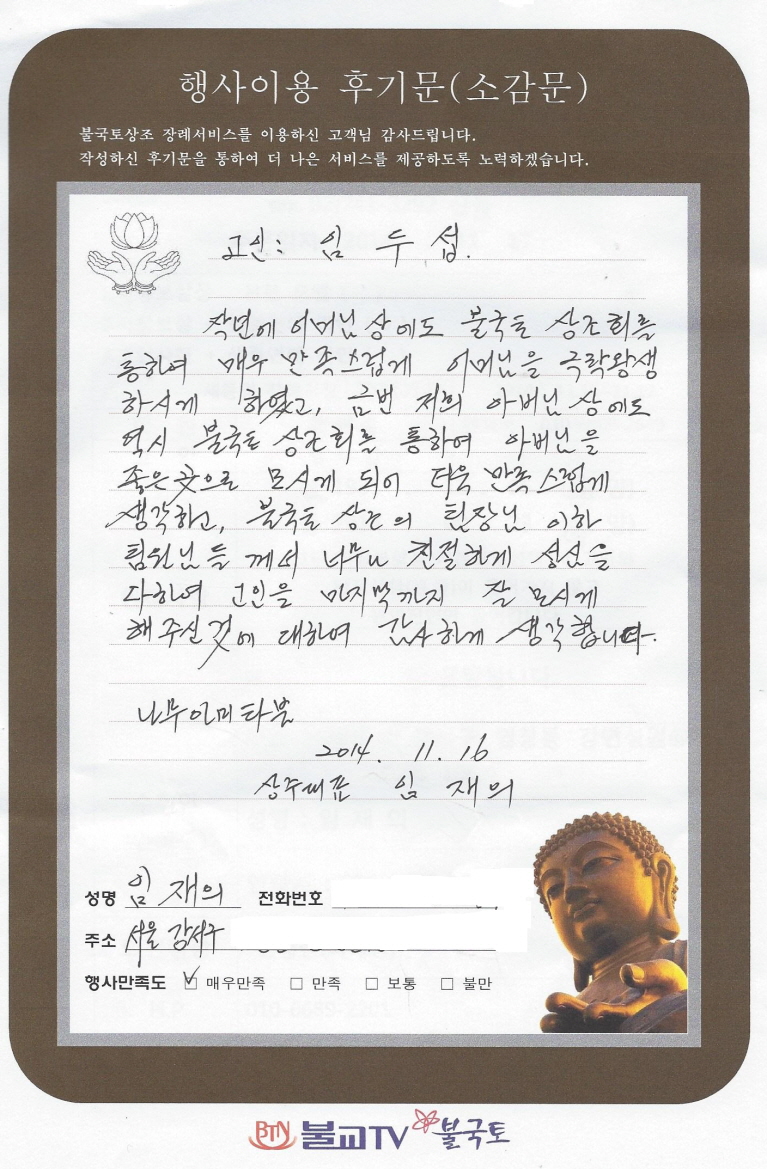 행사이용 후기문(소감문)
불국토상조 장례서비스를 이용하신 고객님 감사드립니다.
작성하신 후기문을 통하여 더 나은 서비스를 제공하도록 노력하겠습니다.
고인: 임 두 섭.
작년에 어머님 상에도 불국토 상조회를
통하여 매우 만족스럽게 어머님을 극락왕생
하시게 하였고, 금번 저희 아버님 상에도
역시 불국토 상조회를 통하여 아버님을
좋은곳으로 모시게 되어 더욱 만족스럽게
생각하고, 불국토 상조의 팀장님 이하
팀원님들 께서 너무나 친절하게 성심을
다하여 고인을 마지막까지 잘 모시게
해주신것에 대하여 감사하게 생각합니다.
나무아미타불
2014. 11. 16
상주대표 임 재 의
성명 임 재의 전화번호
주소 서울 강서구
행사만족도 ☑ 매우만족 □ 만족 □ 보통 □ 불만
BTN 불교TV 불국토